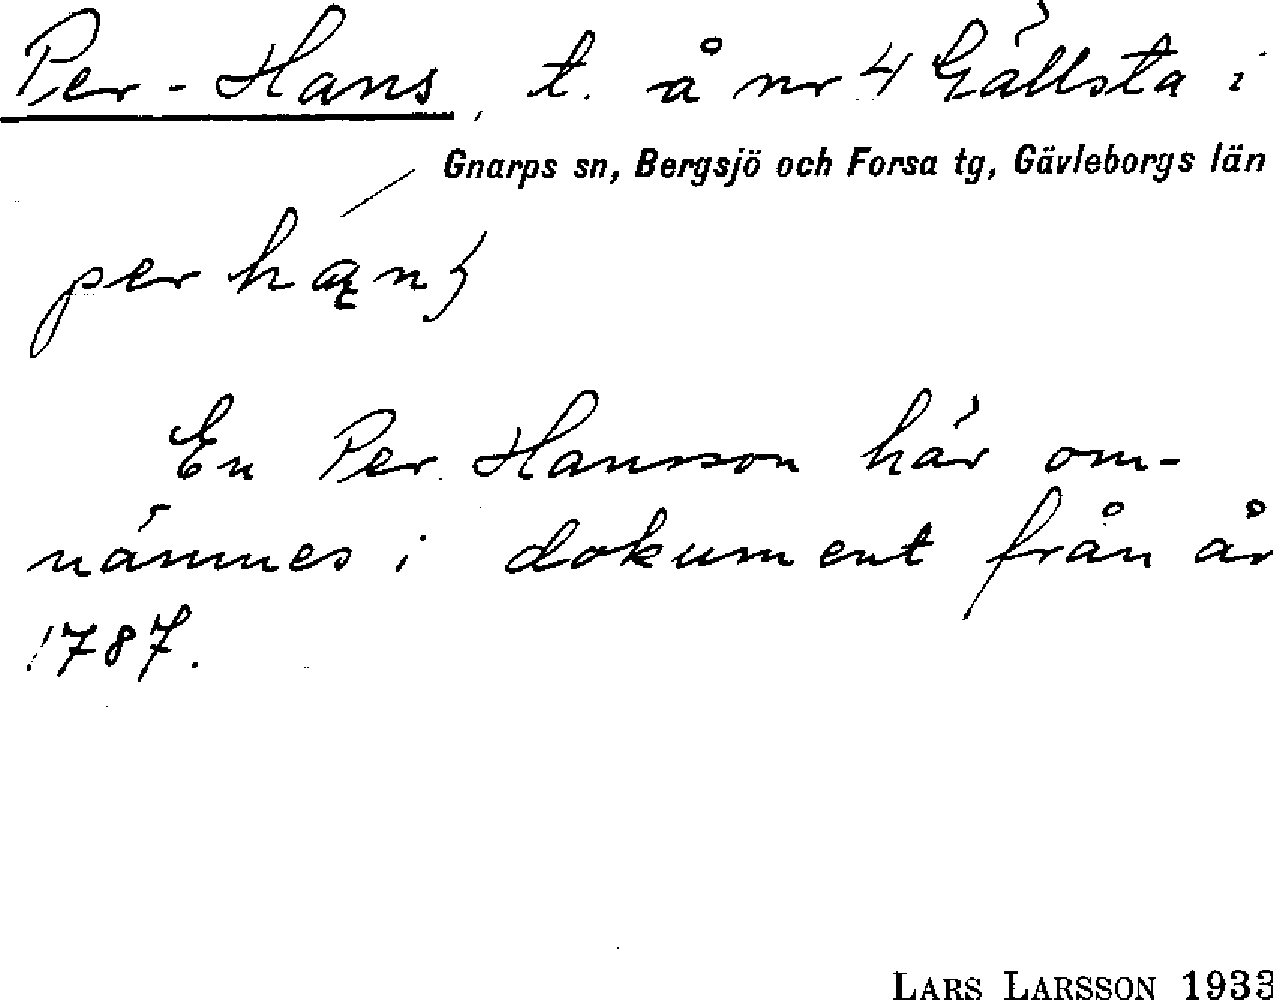 Per-Hans, t. å nr 4 Gällsta i
Gnarps sn, Bergsjö och Forsa tg, Gävleborgs län
per
En Per Hansson här om-
nämnes i dokument från år
1787.
LARS LARSSON 1933